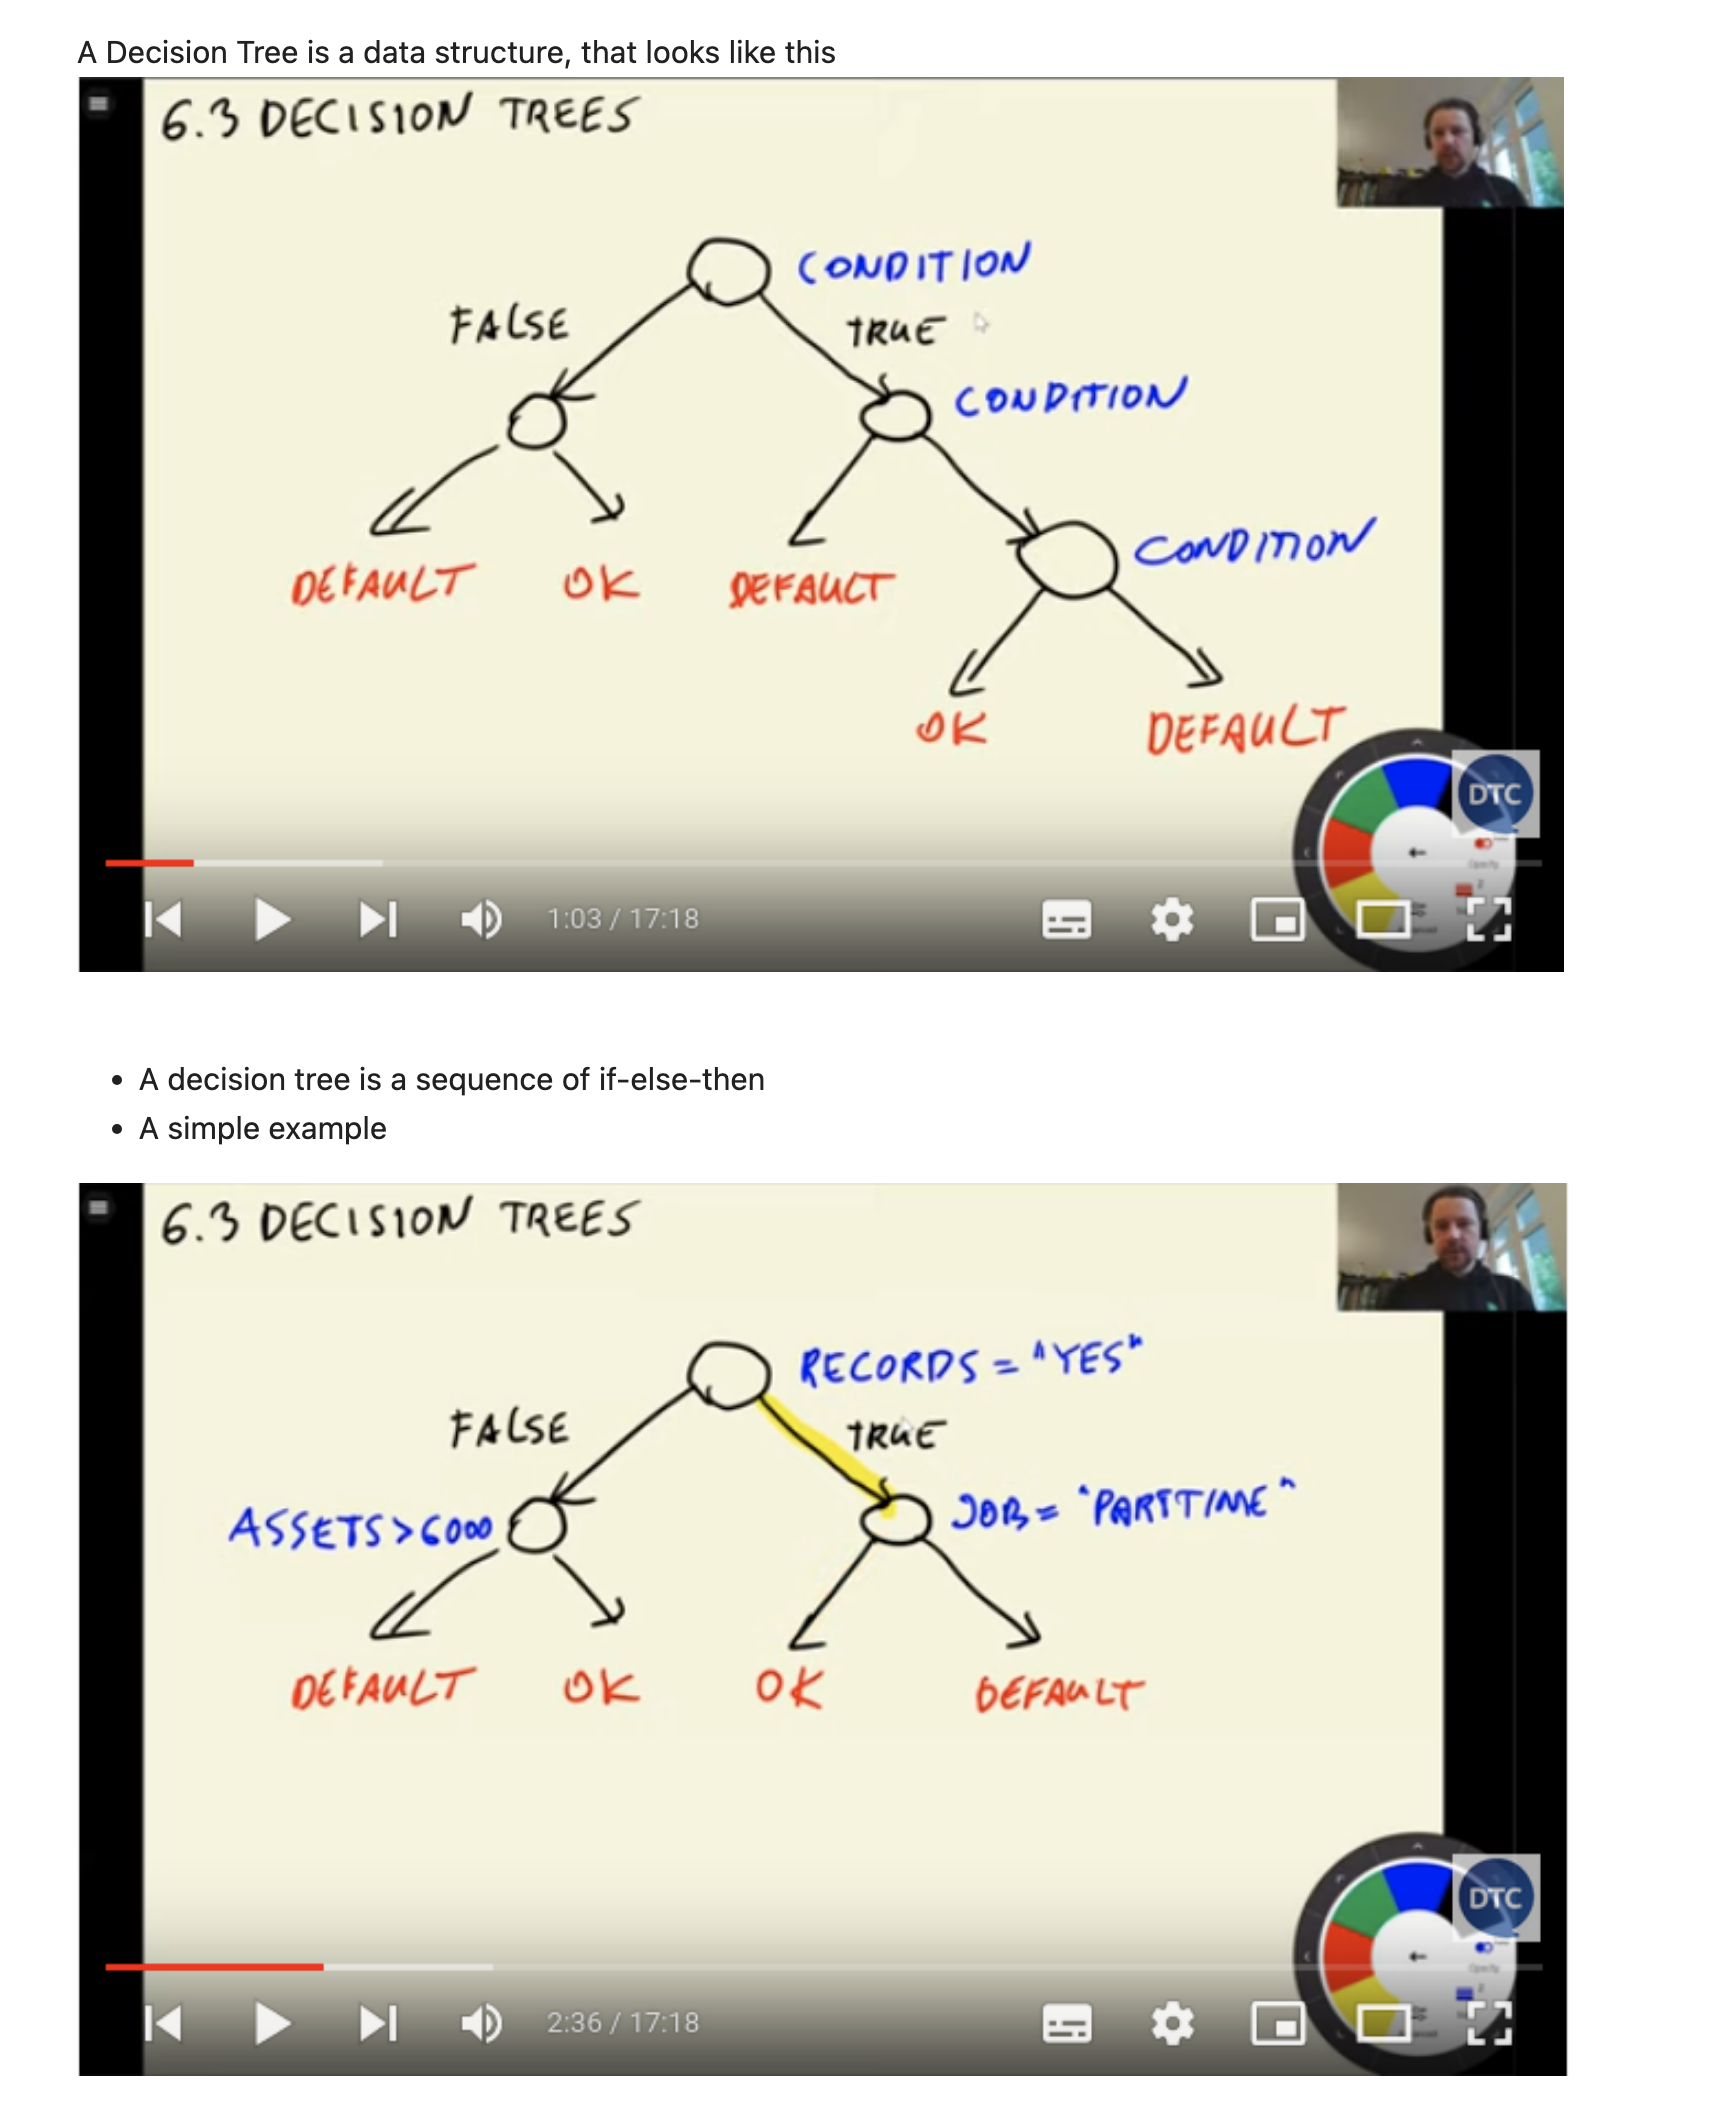 A Decision Tree is a data structure, that looks like this
6.3 DECISION TREES
CONDITION
FALSE
TRUE
CONDITION
CONDITION
DEFAULT OK DEFAULT
OK DEFAULT
DTC
1:03 / 17:18
• A decision tree is a sequence of if-else-then
• A simple example
6.3 DECISION TREES
RECORDS = "YES"
FALSE TRUE
ASSETS > 6000
JOB = "PARTTIME"
DEFAULT OK OK DEFAULT
DTC
2:36 / 17:18